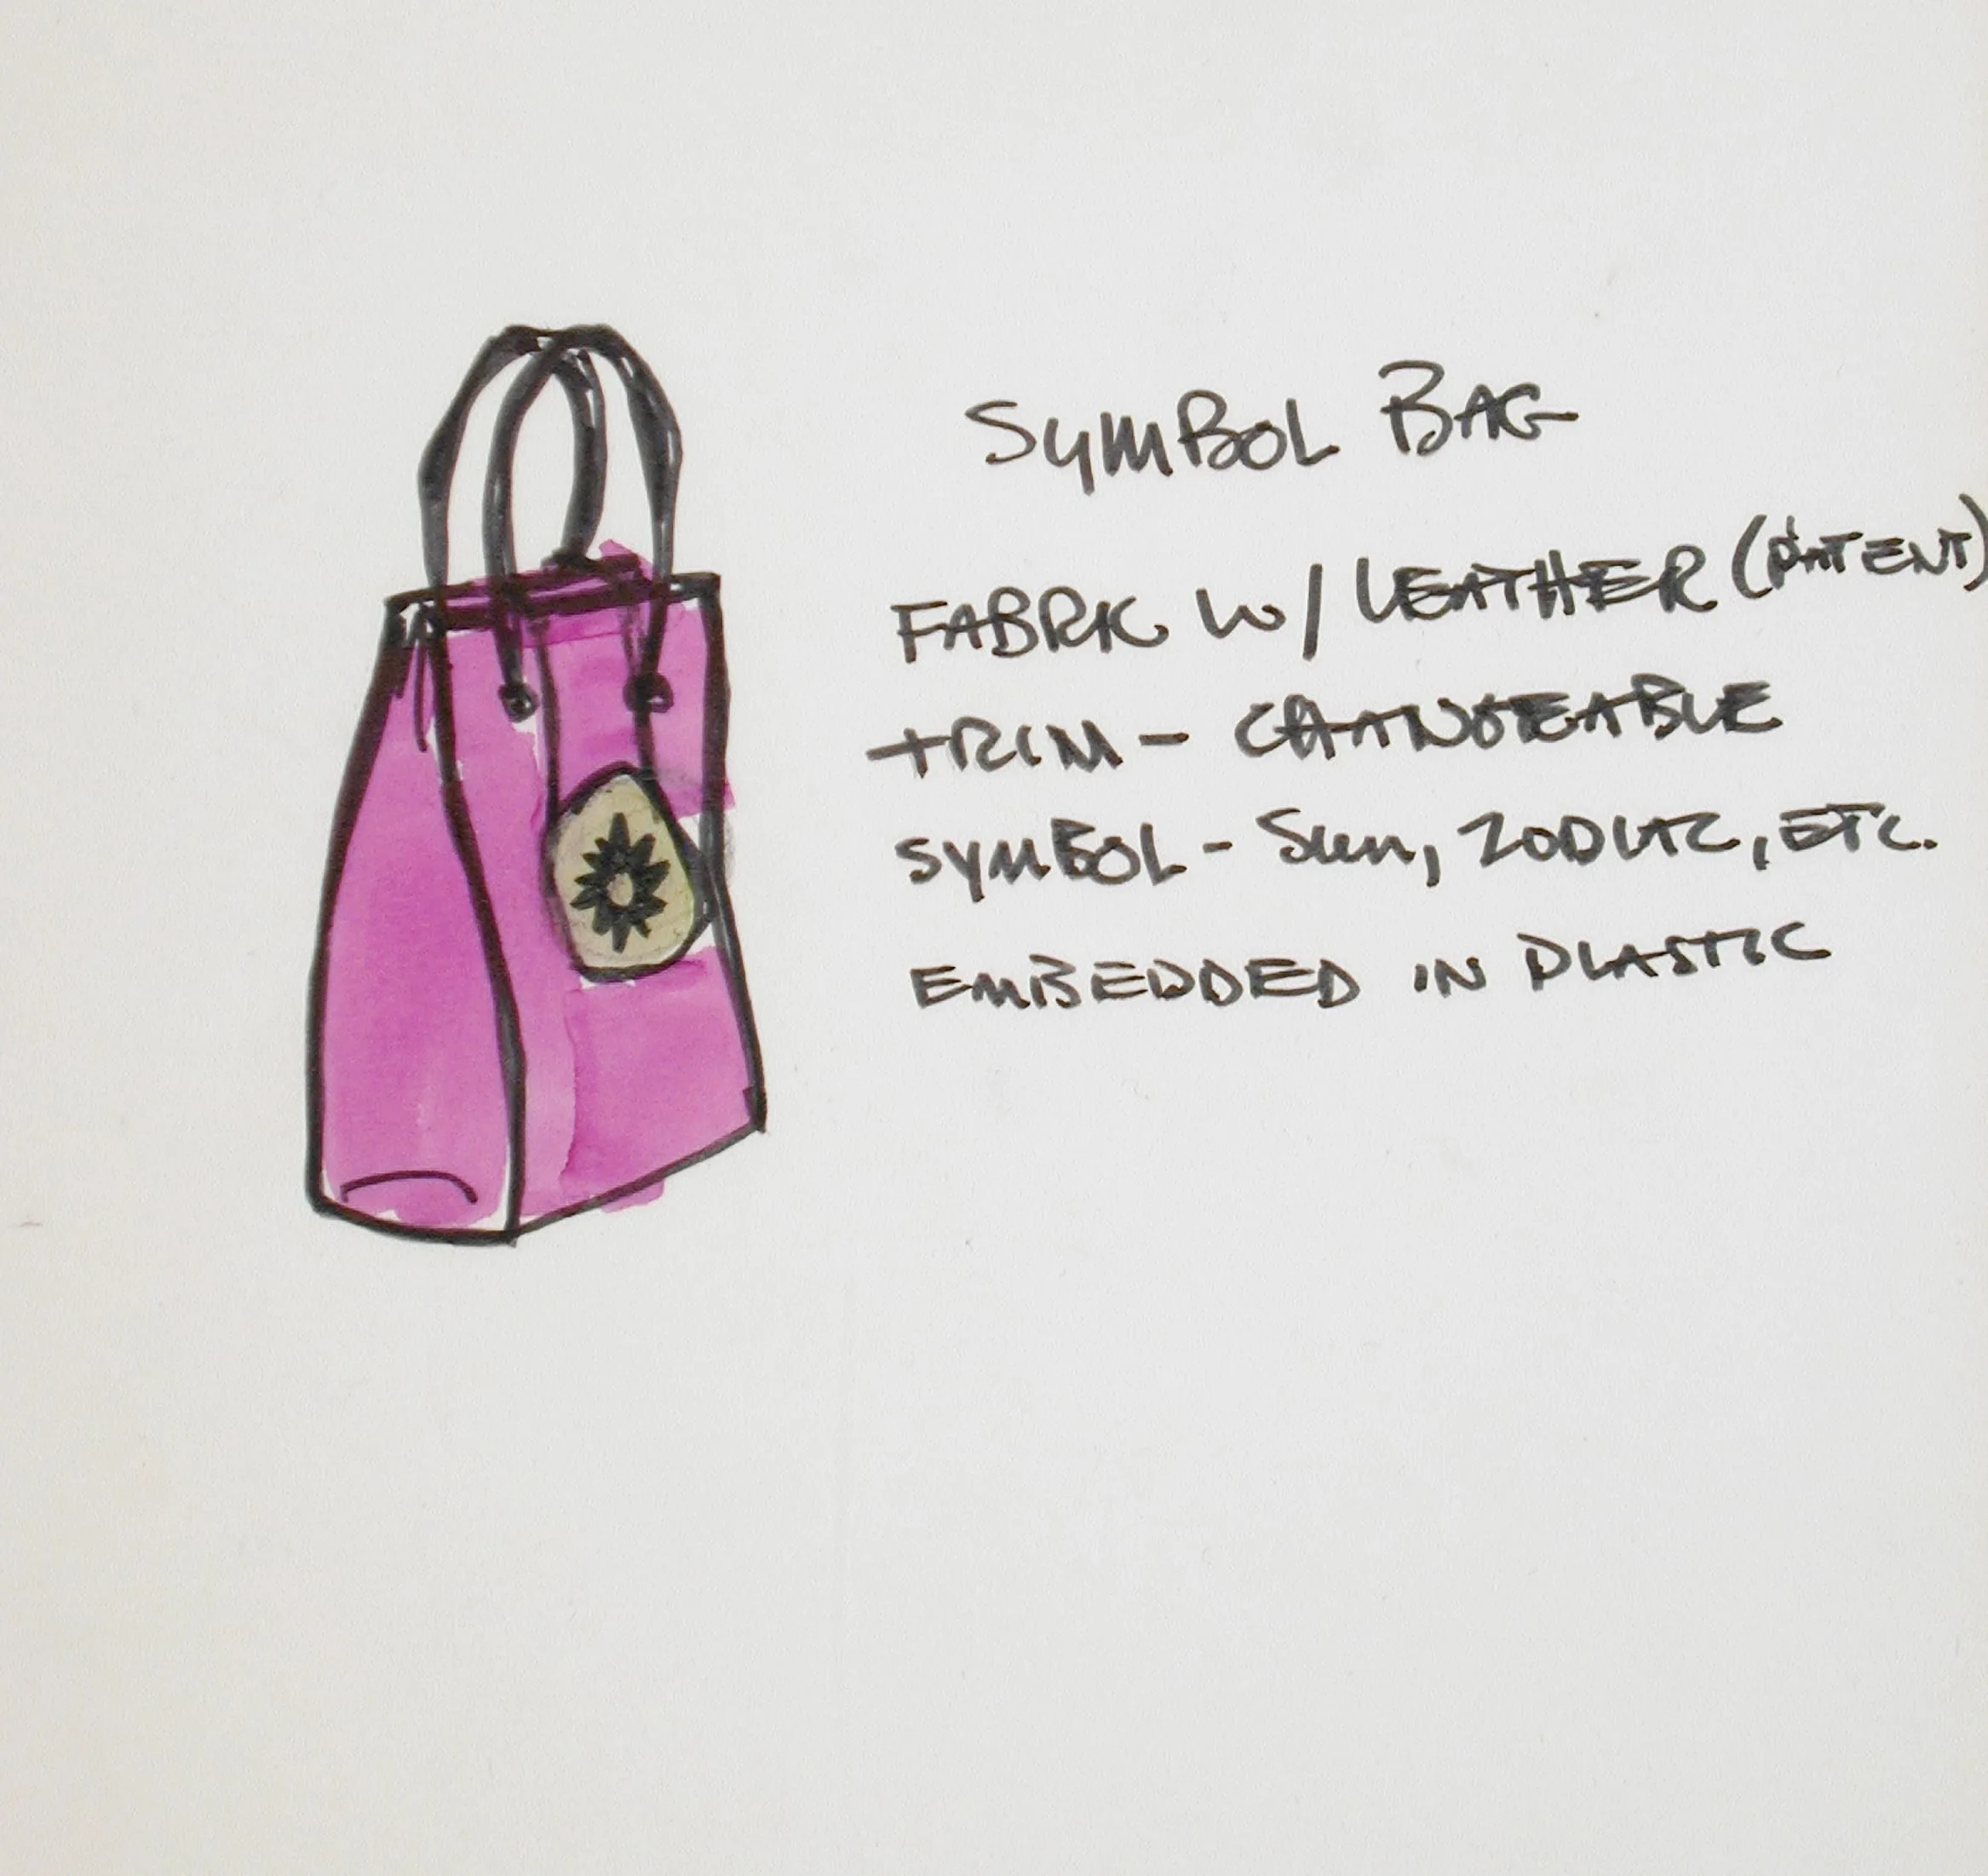 SYMBOL BAG
FABRIC W/ LEATHER (PATENT)
TRIM - CHANGEABLE
SYMBOL - SUN, ZODIAC, ETC.
EMBEDDED IN PLASTIC